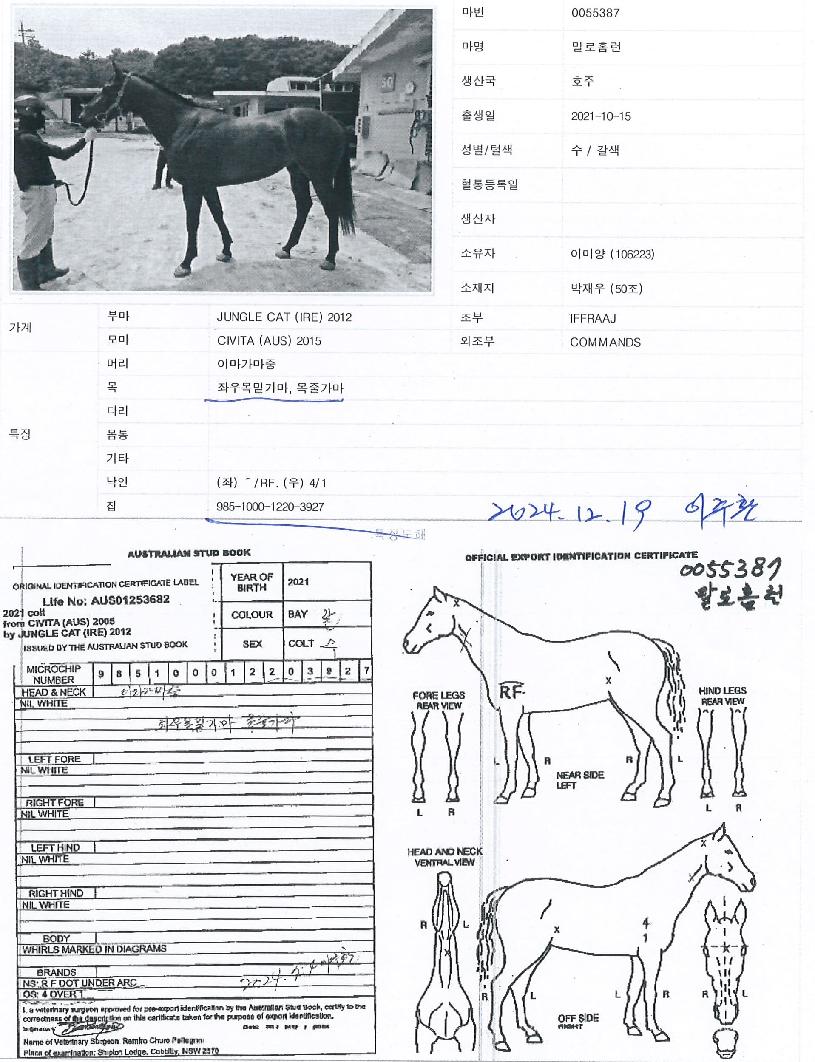 마번 0055387
마명 말로홈런
생산국 호주
출생일 2021-10-15
성별/털색 수 / 갈색
혈통등록일
생산자
소유자 이미양 (106223)
소재지 박재우 (50조)
가계
부마 JUNGLE CAT (IRE) 2012 조부 IFFRAAJ
모마 CIVITA (AUS) 2015 외조부 COMMANDS
특징
머리 이마가마중
목 좌우목밑기마, 목줄가마
다리
몸통
기타
낙인 (좌) ⌒/RF. (우) 4/1
칩 985-1000-1220-3927
2024.12.19 이주환
AUSTRALIAN STUD BOOK
ORIGINAL IDENTIFICATION CERTIFICATE LABEL
Life No: AUS01253682
2021 colt
from CIVITA (AUS) 2005
by JUNGLE CAT (IRE) 2012
ISSUED BY THE AUSTRALIAN STUD BOOK
YEAR OF BIRTH 2021
COLOUR BAY 갈
SEX COLT 수
MICROCHIP NUMBER 9 8 5 1 0 0 0 1 2 2 0 3 9 2 7
HEAD & NECK 이마가마중
NIL WHITE
좌우목밑기마 목줄가마
LEFT FORE
NIL WHITE
RIGHT FORE
NIL WHITE
LEFT HIND
NIL WHITE
RIGHT HIND
NIL WHITE
BODY
WHIRLS MARKED IN DIAGRAMS
BRANDS
NS: R F DOT UNDER ARC
OS: 4 OVER 1
I, a veterinary surgeon approved for pre-export identification by the Australian Stud Book, certify to the
correctness of the description on this certificate taken for the purpose of export identification.
Name of Veterinary Surgeon: Ramiro Churo Pellegrini
Place of examination: Shipton Lodge, Cobbitty, NSW 2570
OFFICIAL EXPORT IDENTIFICATION CERTIFICATE
0055387
말로홈런
RF
FORE LEGS
REAR VIEW
L R
HIND LEGS
REAR VIEW
L R
L R R L
NEAR SIDE
LEFT
HEAD AND NECK
VENTRAL VIEW
R L
4
1
R L
R L L R
OFF SIDE
RIGHT